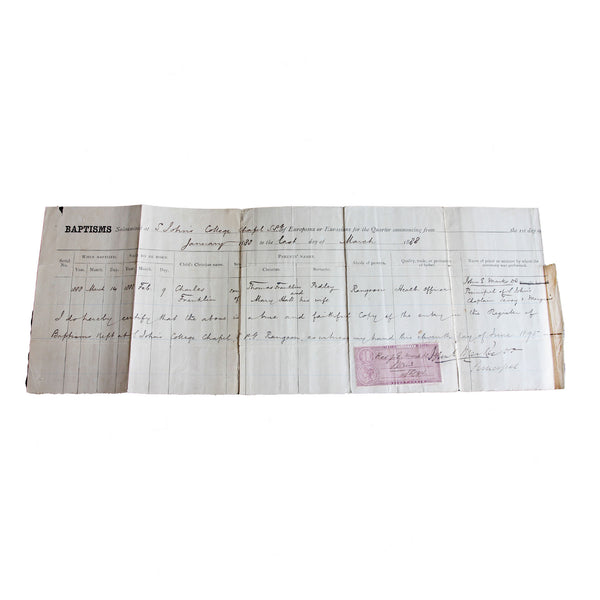 BAPTISMS Solemnized at St Johns College Chapel S.P.G. of Europeans or Eurasians for the Quarter commencing from the 1st day of
January 1888 to the last day of March 1888
Serial No. WHEN BAPTIZED. SAID TO BE BORN. Child's Christian name. PARENTS' NAMES. Abode of parents. Quality, trade, or profession of father. Name of priest or minister by whom the ceremony was performed.
Year. Month. Day. Year. Month. Day. Christian. Surname.
1888 March 14 1888 Feb 9 Charles Franklin son of Thomas Franklin and Mary his wife Pedley Rangoon Health Officer John E. Marks DD Principal of St Johns
I do hereby certify that the above is a true and faithful Copy of the entry in the Register of
Baptisms kept at St Johns College Chapel S.P.G Rangoon, as witness my hand this Eleventh day of June 1895
John E Marks
Principal